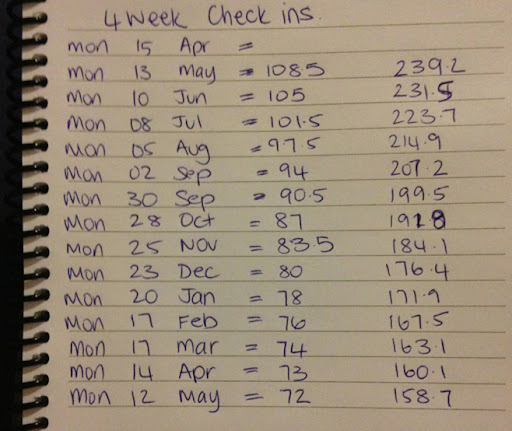 4 Week Check ins.
Mon 15 Apr =
Mon 13 May = 108.5 239.2
Mon 10 Jun = 105 231.5
Mon 08 Jul = 101.5 223.7
Mon 05 Aug = 97.5 214.9
Mon 02 Sep = 94 207.2
Mon 30 Sep = 90.5 199.5
Mon 28 Oct = 87 191.8
Mon 25 Nov = 83.5 184.1
Mon 23 Dec = 80 176.4
Mon 20 Jan = 78 171.9
Mon 17 Feb = 76 167.5
Mon 17 Mar = 74 163.1
Mon 14 Apr = 73 160.1
Mon 12 May = 72 158.7